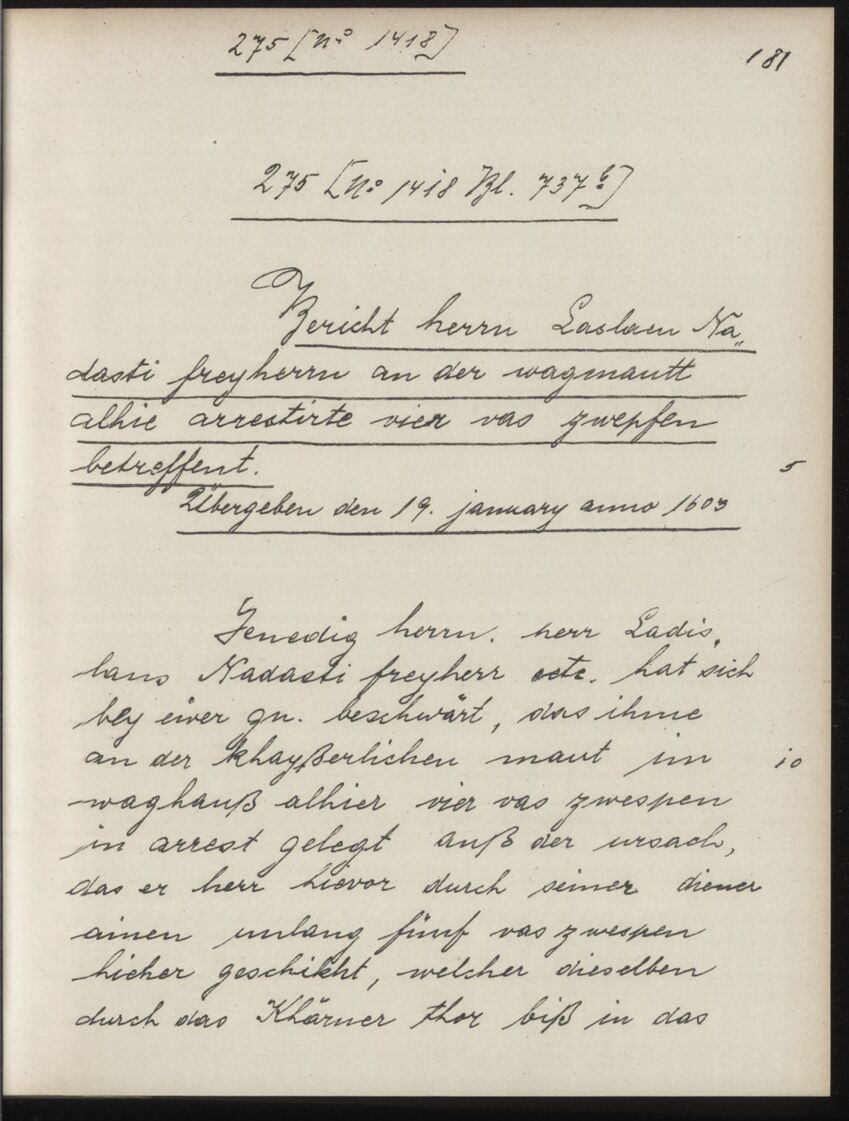 275 [No 1418]
181
275 [No 1418 Bl. 737 b]
Bericht herrn Laslaen Na„
dasti freyherrn an der wagmautt
alhie arrestirte vier vas zwepfen
betreffent.
5
Übergeben den 19. january anno 1603
Genedig herrn. herr Ladis„
laus Nadasti freyherr etc. hat sich
bey ewer gn. beschwärt, das ihme
an der khayßerlichen maut im
10
waghauß alhier vier vas zwespen
in arrest gelegt auß der ursach,
das er herr hievor durch seiner diener
ainen unlang fünf vas zwespen
hieher geschikht, welcher dieselben
durch das Khärner thor biß in das